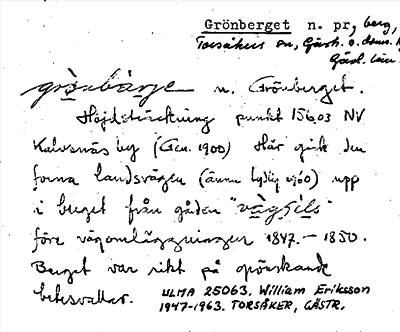 Grönberget n. pr, berg,
Torsåkers sn, Gästr.
Gävl. län
grönbärje n. Grönberget.
Höjdsträckning punkt 156.03 NV
Kalvsnäs by (Gen. 1900) Här gick den
forna landsvägen (ännu tydlig 1960) upp
i berget från gården "vägsels"
före vägomläggningen 1847.–1850.
Berget var rikt på grönskande
betesvallar. ULMA 25063. William Eriksson
1947-1963. TORSÅKER, GÄSTR.